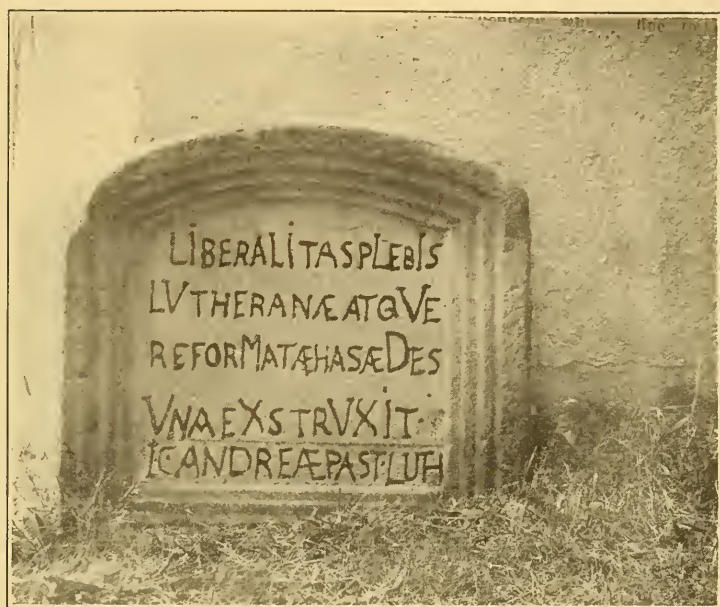 LIBERALITASPLEBIS
LVTHERANÆATQVE
REFORMATÆHASÆDES
VNAEXSTRVXIT·
ICANDREÆPAST·LUTH